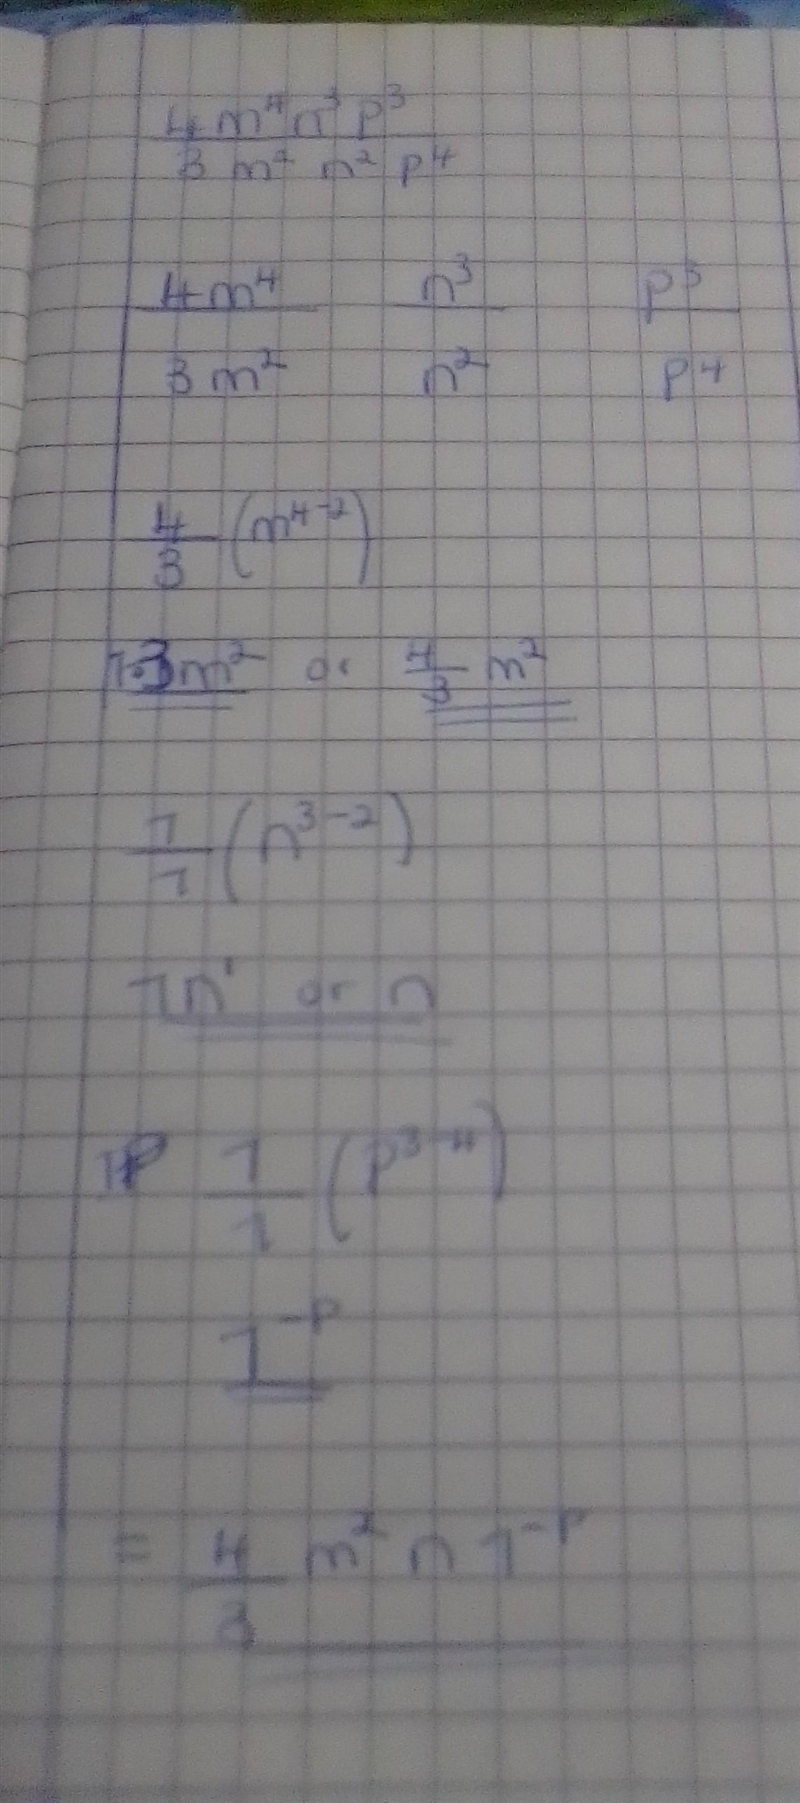 4 m⁴ n³ p³
3 m² n² p⁴
4 m⁴ n³ p³
3 m² n² p⁴
4/3 (m⁴⁻²)
1.3m² or 4/3 m²
1/1 (n³⁻²)
1n¹ or n
1P 1/1 (P³⁻⁴)
1⁻ᵖ
= 4/3 m² n 1⁻ᵖ